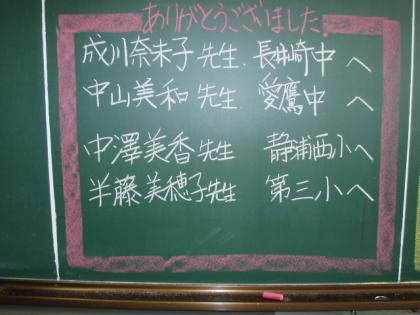 ありがとうございました！
成川奈未子先生．長井崎中へ
中山美和先生 愛鷹中へ
中澤美香先生 静浦西小へ
半藤美穂子先生 第三小へ